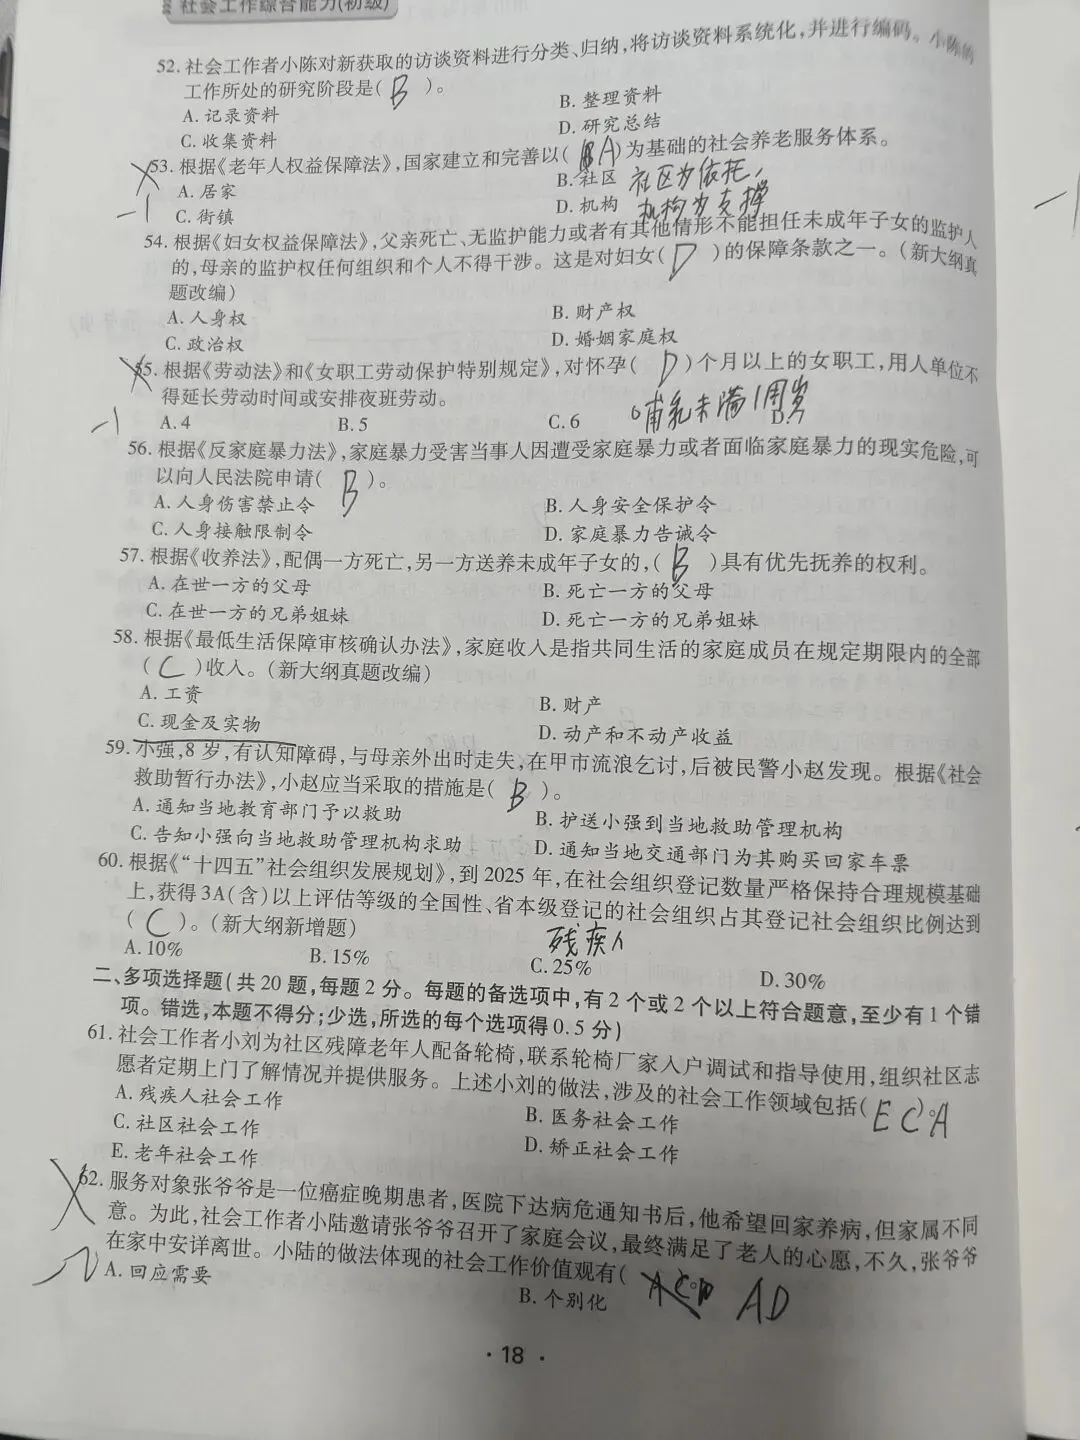 社会工作综合能力(初级)
52. 社会工作者小陈对新获取的访谈资料进行分类、归纳,将访谈资料系统化,并进行编码。小陈的
工作所处的研究阶段是( B )。
A. 记录资料 B. 整理资料
C. 收集资料 D. 研究总结
53. 根据《老年人权益保障法》,国家建立和完善以( A )为基础的社会养老服务体系。
A. 居家 B. 社区 社区为依托,
-1 C. 街镇 D. 机构 机构为支撑
54. 根据《妇女权益保障法》,父亲死亡、无监护能力或者有其他情形不能担任未成年子女的监护人
的,母亲的监护权任何组织和个人不得干涉。这是对妇女( D )的保障条款之一。(新大纲真
题改编)
A. 人身权 B. 财产权
C. 政治权 D. 婚姻家庭权
55. 根据《劳动法》和《女职工劳动保护特别规定》,对怀孕( D )个月以上的女职工,用人单位不
得延长劳动时间或安排夜班劳动。
哺乳未满1周岁
-1 A. 4 B. 5 C. 6 D. 7
56. 根据《反家庭暴力法》,家庭暴力受害当事人因遭受家庭暴力或者面临家庭暴力的现实危险,可
以向人民法院申请( B )。
A. 人身伤害禁止令 B. 人身安全保护令
C. 人身接触限制令 D. 家庭暴力告诫令
57. 根据《收养法》,配偶一方死亡,另一方送养未成年子女的,( B )具有优先抚养的权利。
A. 在世一方的父母 B. 死亡一方的父母
C. 在世一方的兄弟姐妹 D. 死亡一方的兄弟姐妹
58. 根据《最低生活保障审核确认办法》,家庭收入是指共同生活的家庭成员在规定期限内的全部
( C )收入。(新大纲真题改编)
A. 工资 B. 财产
C. 现金及实物 D. 动产和不动产收益
59. 小强,8 岁,有认知障碍,与母亲外出时走失,在甲市流浪乞讨,后被民警小赵发现。根据《社会
救助暂行办法》,小赵应当采取的措施是( B )。
A. 通知当地教育部门予以救助 B. 护送小强到当地救助管理机构
C. 告知小强向当地救助管理机构求助 D. 通知当地交通部门为其购买回家车票
60. 根据《“十四五”社会组织发展规划》,到 2025 年,在社会组织登记数量严格保持合理规模基础
上,获得 3A(含)以上评估等级的全国性、省本级登记的社会组织占其登记社会组织比例达到
( C )。(新大纲新增题)
残疾人
A. 10% B. 15% C. 25% D. 30%
二、多项选择题(共 20 题,每题 2 分。每题的备选项中,有 2 个或 2 个以上符合题意,至少有 1 个错
项。错选,本题不得分;少选,所选的每个选项得 0.5 分)
61. 社会工作者小刘为社区残障老年人配备轮椅,联系轮椅厂家入户调试和指导使用,组织社区志
愿者定期上门了解情况并提供服务。上述小刘的做法,涉及的社会工作领域包括( E C A )。
A. 残疾人社会工作 B. 医务社会工作
C. 社区社会工作 D. 矫正社会工作
E. 老年社会工作
62. 服务对象张爷爷是一位癌症晚期患者,医院下达病危通知书后,他希望回家养病,但家属不同
意。为此,社会工作者小陆邀请张爷爷召开了家庭会议,最终满足了老人的心愿,不久,张爷爷
在家中安详离世。小陆的做法体现的社会工作价值观有( )。 AD
A. 回应需要 B. 个别化
· 18 ·